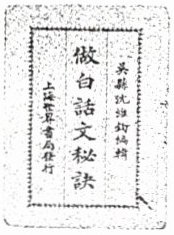 吳縣沈維鈞編輯
做白話文秘訣
上海世界書局發行